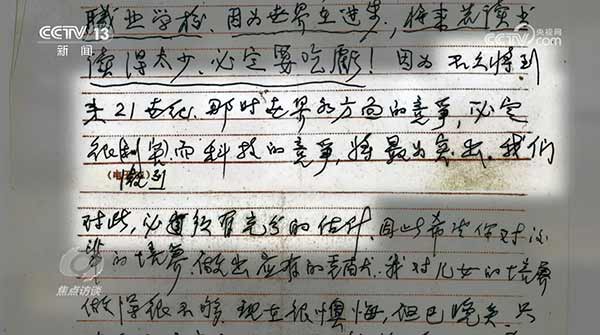 CCTV 13
新闻
央视网
CCTV.com
职业学校。因为世界在进步,将来若读书
读得太少,必定要吃亏!因为不久将到
来21世纪,那时世界各方面的竞争,必定
很剧烈,而科技的竞争,将最为突出。我们
对此,必须有充分的估计。因此希望你对
的培养,做出应有的贡献。我对儿女的培养
做得很不够,现在很懊悔,但已晚矣。只
焦点访谈